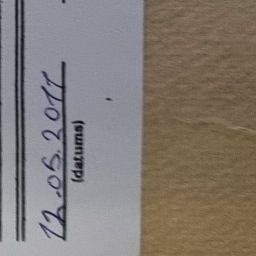 12.05.2011
(datums)